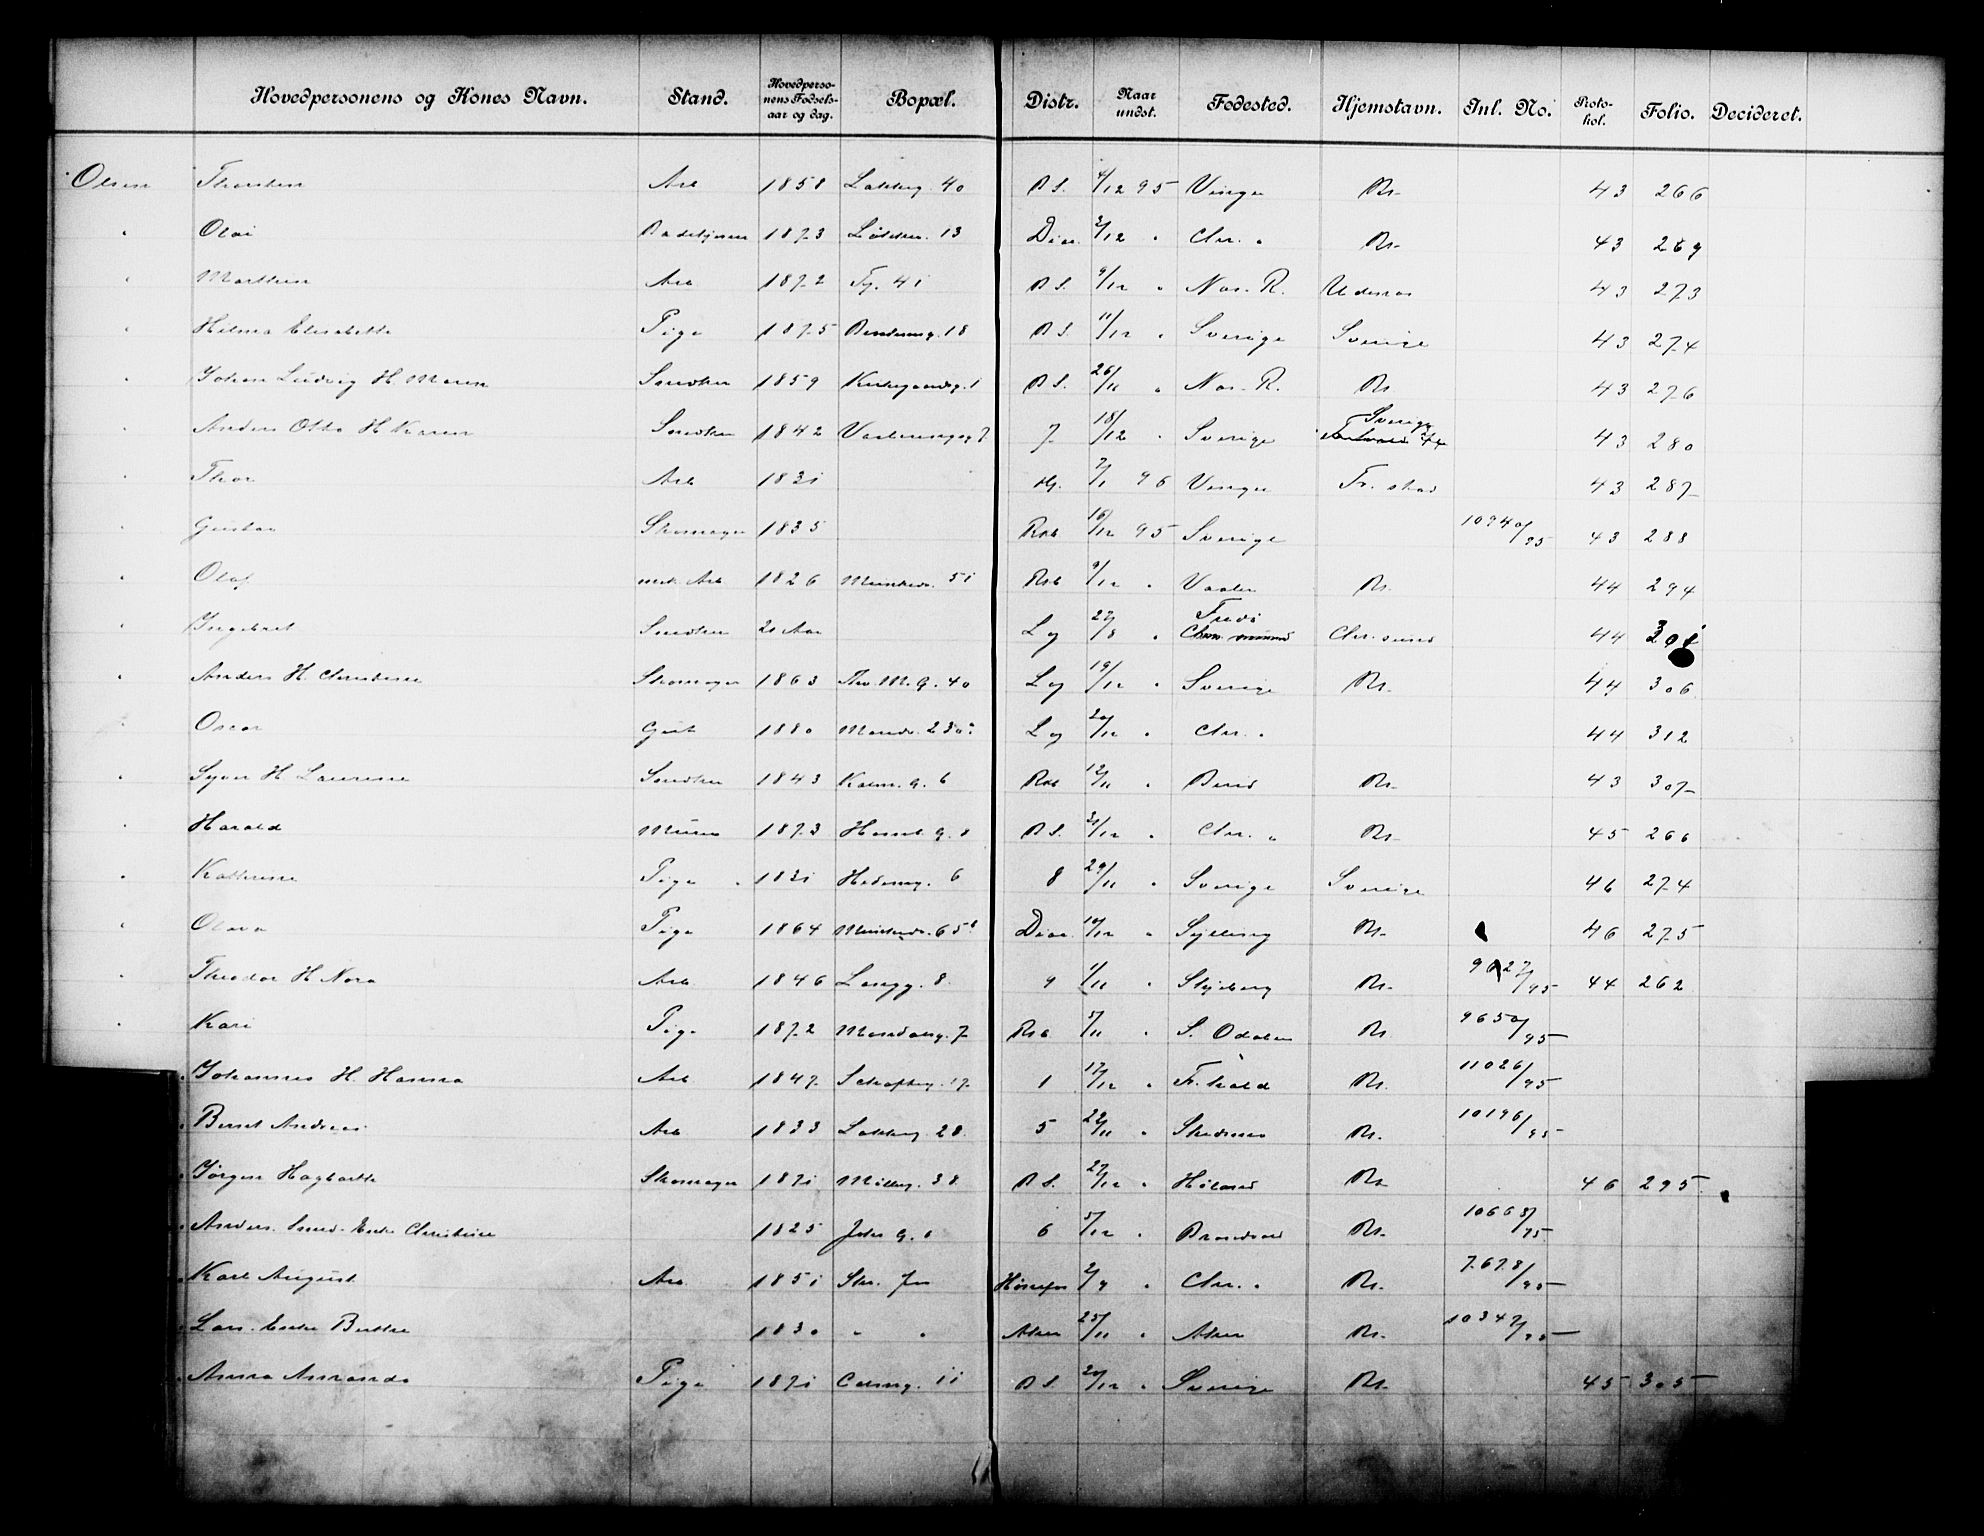 Hovedpersonens og Kones Navn. Stand. Hovedpersonens Fødselsaar og dag. Bopæl. Distr. Naar undst. Fødested. Hjemstavn. Inl. No. Protokol. Folio. Decideret.
Olsen Thorsten Arb 1858 Lakkeg. 40 B S. 4/12 95 Vinger Kr. 43 266
" Olai 1873 Løkkev. 13 Diac. 3/12 " Chr. " Kr. 43 269
" Marthin Arb 1872 Tg. 41 B S. 9/12 " Næs. R. Udenæs 43 273
" Hilma Elisabeth Pige 1875 18 B S. 11/12 " Sverige Sverige 43 274
" Johan Ludvig H. Maren Snedker 1859 Kirkegaardsg. 1 B S. 26/11 " Næs. R. Kr 43 276
" Anders Otto H Karen Snedker 1842 Vaalerengag 7 7 18/12 " Sverige Sverige 43 280
" Thor Arb 1831 7/1 96 Vinger Fr. stad 43 287
" Gustav Skomager 1835 Rsb 16/12 95 Sverige 10940/95 43 288
" Olaf mek. Arb 1826 Munkedv. 51 Rsb 9/12 " Vaaler Kr. 44 294
" Ingebret Snedker 20 Aar Lg 27/8 " Fredø Chr. sund Chr. sund 44 301
" Anders H. Christine Skomager 1863 Thv. M. g. 40 Lg 19/12 " Sverige Kr. 44 306
" Oscar Gut 1880 Maridv. 230 Lg 20/12 " Chr. " 44 312
" Syver H Laurense Snedker 1843 Kalm. g. 6 Rsb 12/11 " Berid Kr. 43 307
" Harald Murer 1873 g. 8 B S. 21/12 " Chr. " Kr. 45 266
" Kathrine Pige 1831 Hederng. 6 8 29/11 " Sverige Sverige 46 274
" Olava Pige 1864 Munkedv. 65 Diac. 10/12 " Sylling Kr. 46 275
" Theodor H Nora Arb 1846 Langg. 8. 9 1/11 " Skjeberg Kr. 9027/95 44 262
" Kari Pige 1872 Maridalsg. 7 Rsb 5/11 " S. Odalen Kr. 9650/95
" Johannes H. Hanna Arb 1847 17 1 17/12 " Fr. hald Kr. 11026/95
" Berset Andreas Arb 1833 Lakkeg. 28. 5 22/11 " Skedsmo Kr. 10196/95
" Jørgen Hagbarth Skomager 1871 Mølleg. 38 B S. 27/12 " Høland Kr 46 295
" Anders. Smed. Enke Christine 1825 g. 6 6 5/12 " Brandval Kr. 10668/95
" Karl August Arb 1851 Hønefos 2/9 " Chr. " Kr. 7678/95
" Lars. Enke Berthe 1830 " " Aker 25/11 " Aker Kr. 10347/95
" Anna Amanda Pige 1871 Calmg. 11 B S. 20/12 " Sverige Kr. 45 305